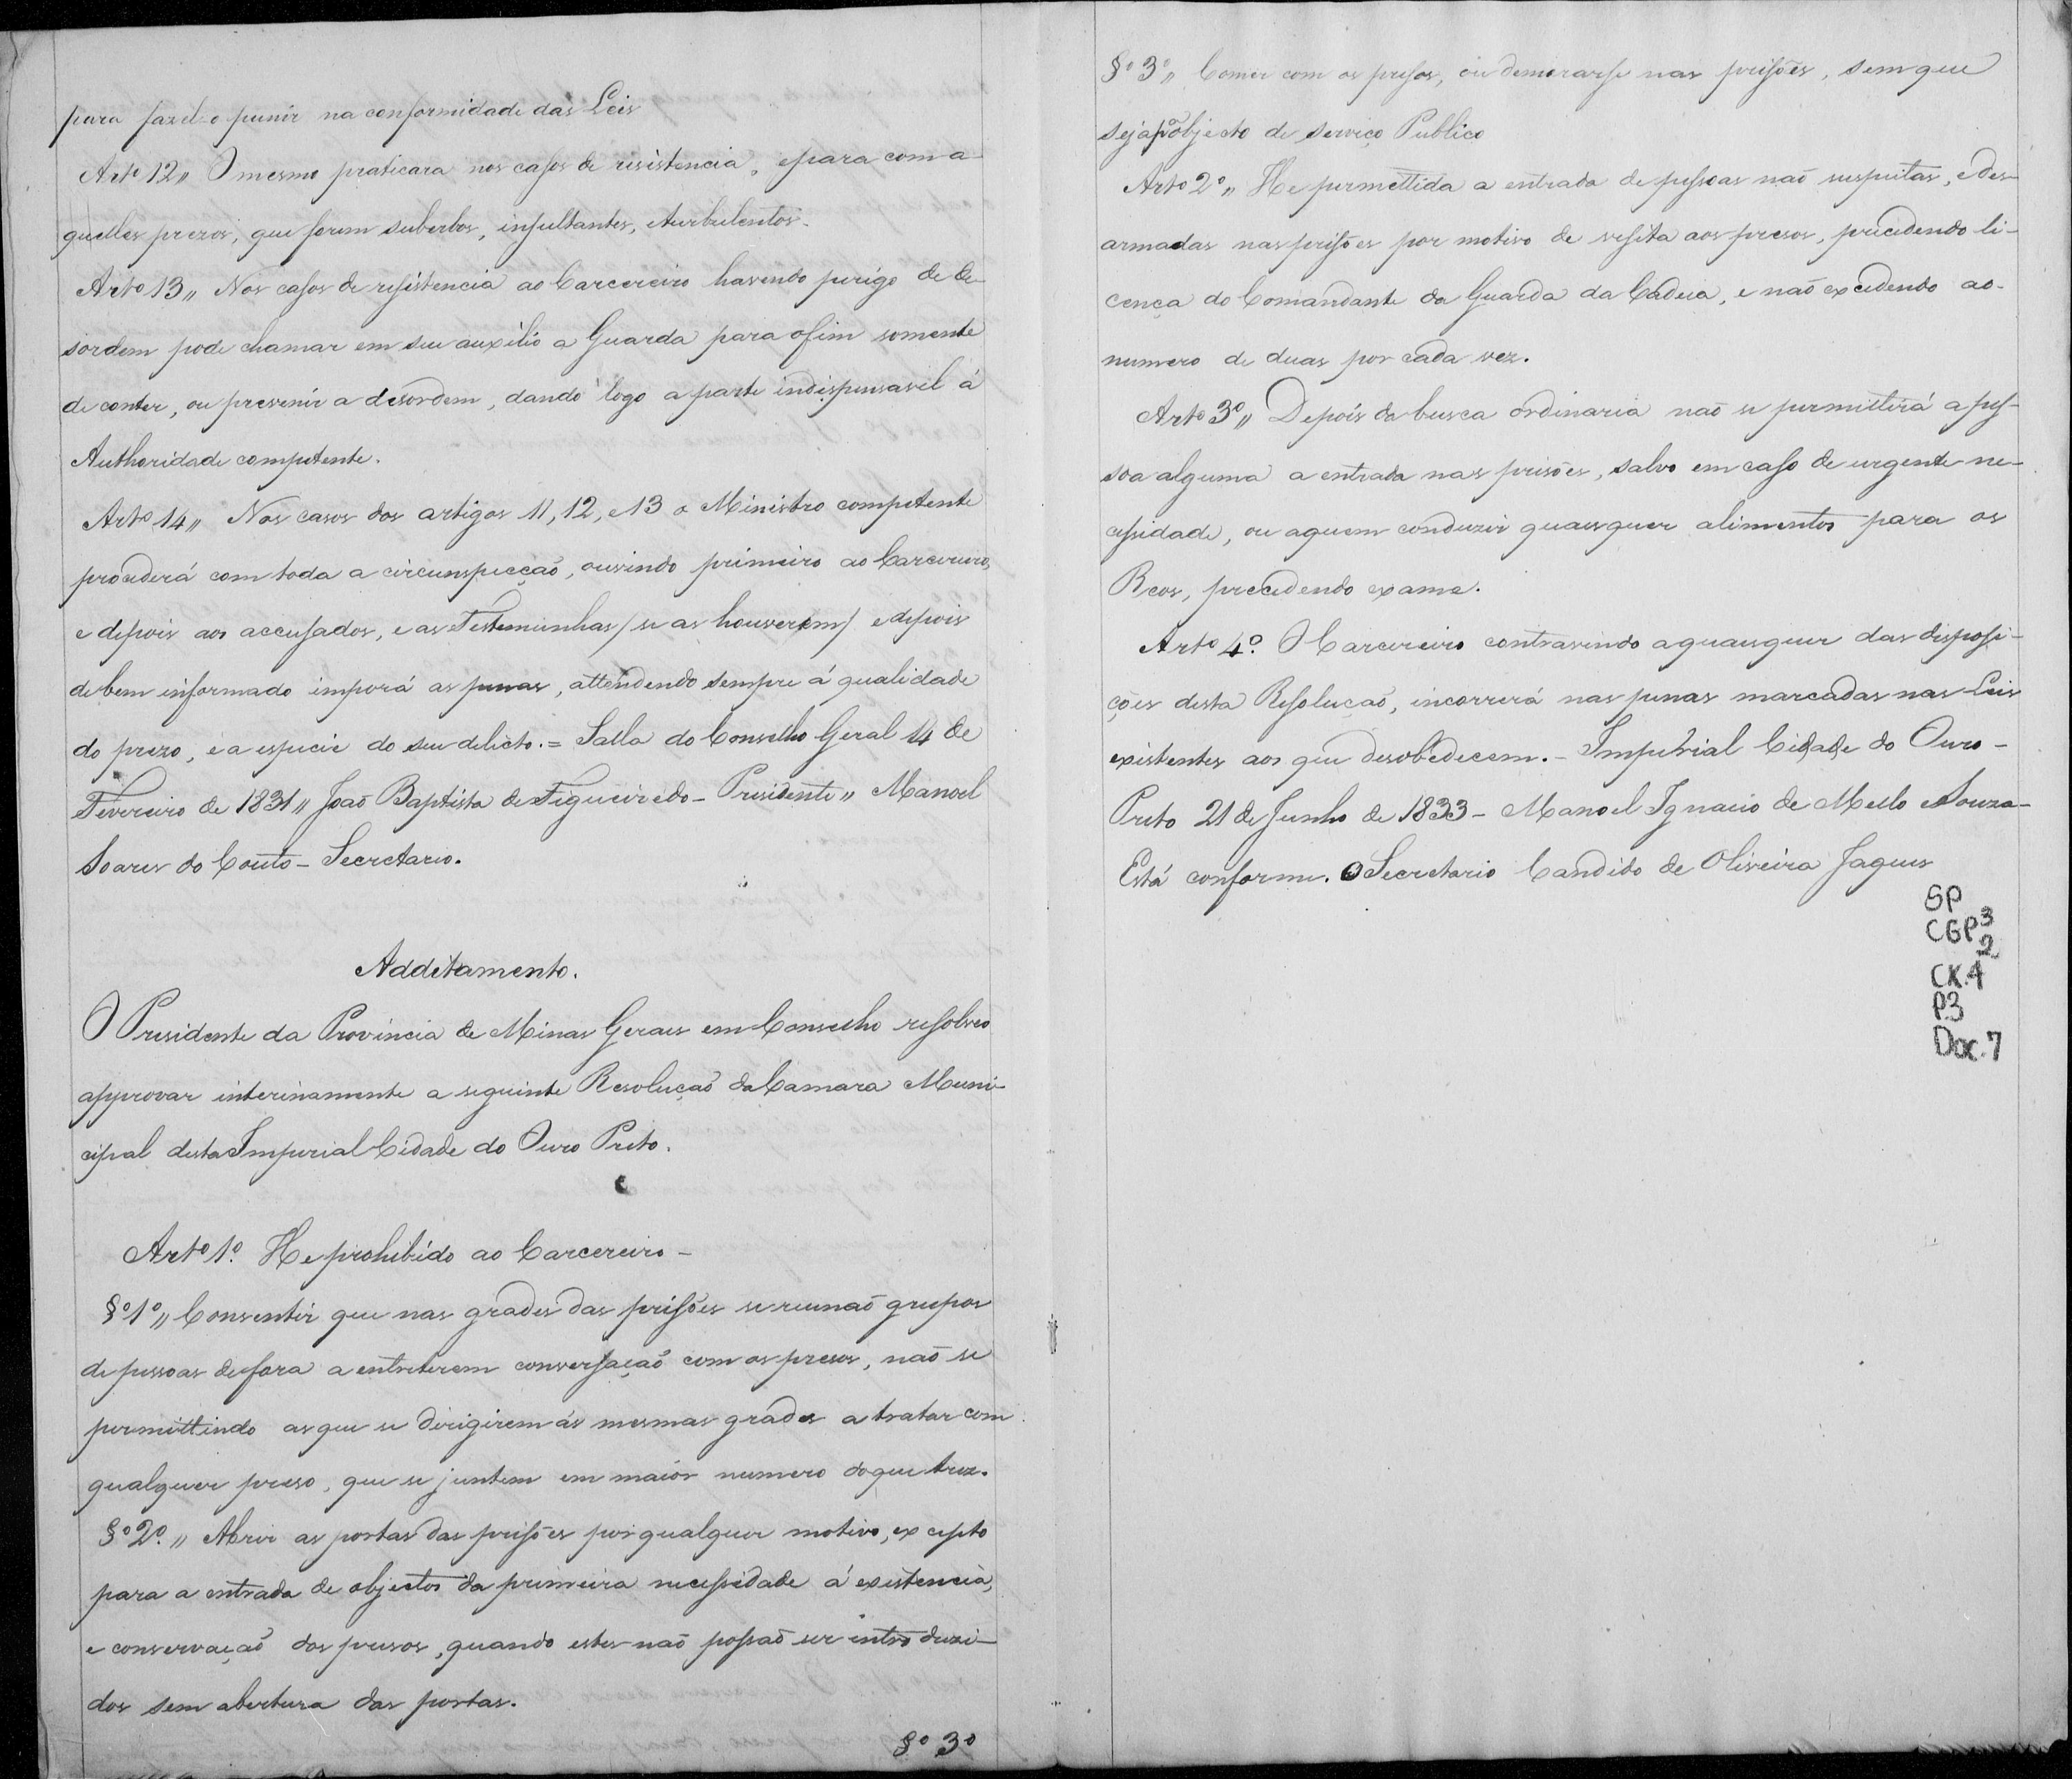 para fazel-o punir na conformidade das Leis
Artº 12 „ O mesmo praticara nos casos de risistencia, epara com a-
quelles prezos, que forem suberbos, insultantes, eturbulentos.
Artº 13 „ Nos casos de resistencia ao Carcereiro havendo perigo de de-
sordem pode chamar em seu auxilio a Guarda para ofim somente
de conter, ou prevenir a desordem, dando logo a parte indispensavel á
Authoridade competente.
Artº 14 „ Nos casos dos artigos 11, 12, e13 o Ministro competente
procederá com toda a circunspecçaõ, ouvindo primeiro ao Carcereiro,
e depois aos accusados, e as Testemunhas / se as houverem / e depois
de bem informado imporá as penas, attendendo sempre á qualidade
do prezo, e a especie do seu delicto. = Salla do Conselho Geral 14 de
Fevereiro de 1831 „ Joaõ Baptista de Figueiredo - Presidente „ Manoel
Soares do Couto - Secretario.
Additamento.
O Presidente da Provincia de Minas Geraes em Conselho resolveo
approvar interinamente a seguinte Resoluçaõ da Camara Muni-
cipal desta Imperial Cidade do Ouro Preto.
Artº 1º. He prohibido ao Carcereiro -
§º 1º „ Consentir que nas grades das prisões se reunaõ grupos
de pessoas defora a entreterem conversaçaõ com os presos, naõ se
permittindo as que se dirigirem ás mesmas grades a tratar com
qualquer preso, que se juntem em maior numero doque trez.
§º 2º. „ Abrir as portas das prisões por qualquer motivo, excepto
para a entrada de objectos da primeira necessidade á existencia,
e conservaçaõ dos presos, quando estes naõ possaõ ser introduzi-
dos sem abertura das portas.
§º 3º
§º 3º „ Comer com os presos, ou demorarse nas prisões, sem que
seja pº objecto de serviço Publico
Artº 2º „ He permettida a entrada de pessoas naõ suspeitas, e des-
armadas nas prisões por motivo de vesita aos presos, precedendo li-
cença do Comandante da Guarda da Cadeia, e naõ excedendo ao
numero de duas por cada vez.
Artº 3º „ Depois da busca ordinaria naõ se permittirá a pes-
soa alguma a entrada nas prisões, salvo em caso de urgente ne-
cessidade, ou aquem conduzir quaesquer alimentos para os
Reos, precedendo exame.
Artº 4º. O Carcereiro contravindo a quaesquer das disposi-
ções desta Resoluçaõ, incorrerá nas penas marcadas nas Leis
existentes aos que desobedecem. - Imperial Cidade do Ouro -
Preto 21 de Junho de 1833 - Manoel Ignacio de Mello e Souza -
Está conforme. O Secretario Candido de Oliveira Jaques
SP
CGP3
2
CX.4
P3
Doc.7